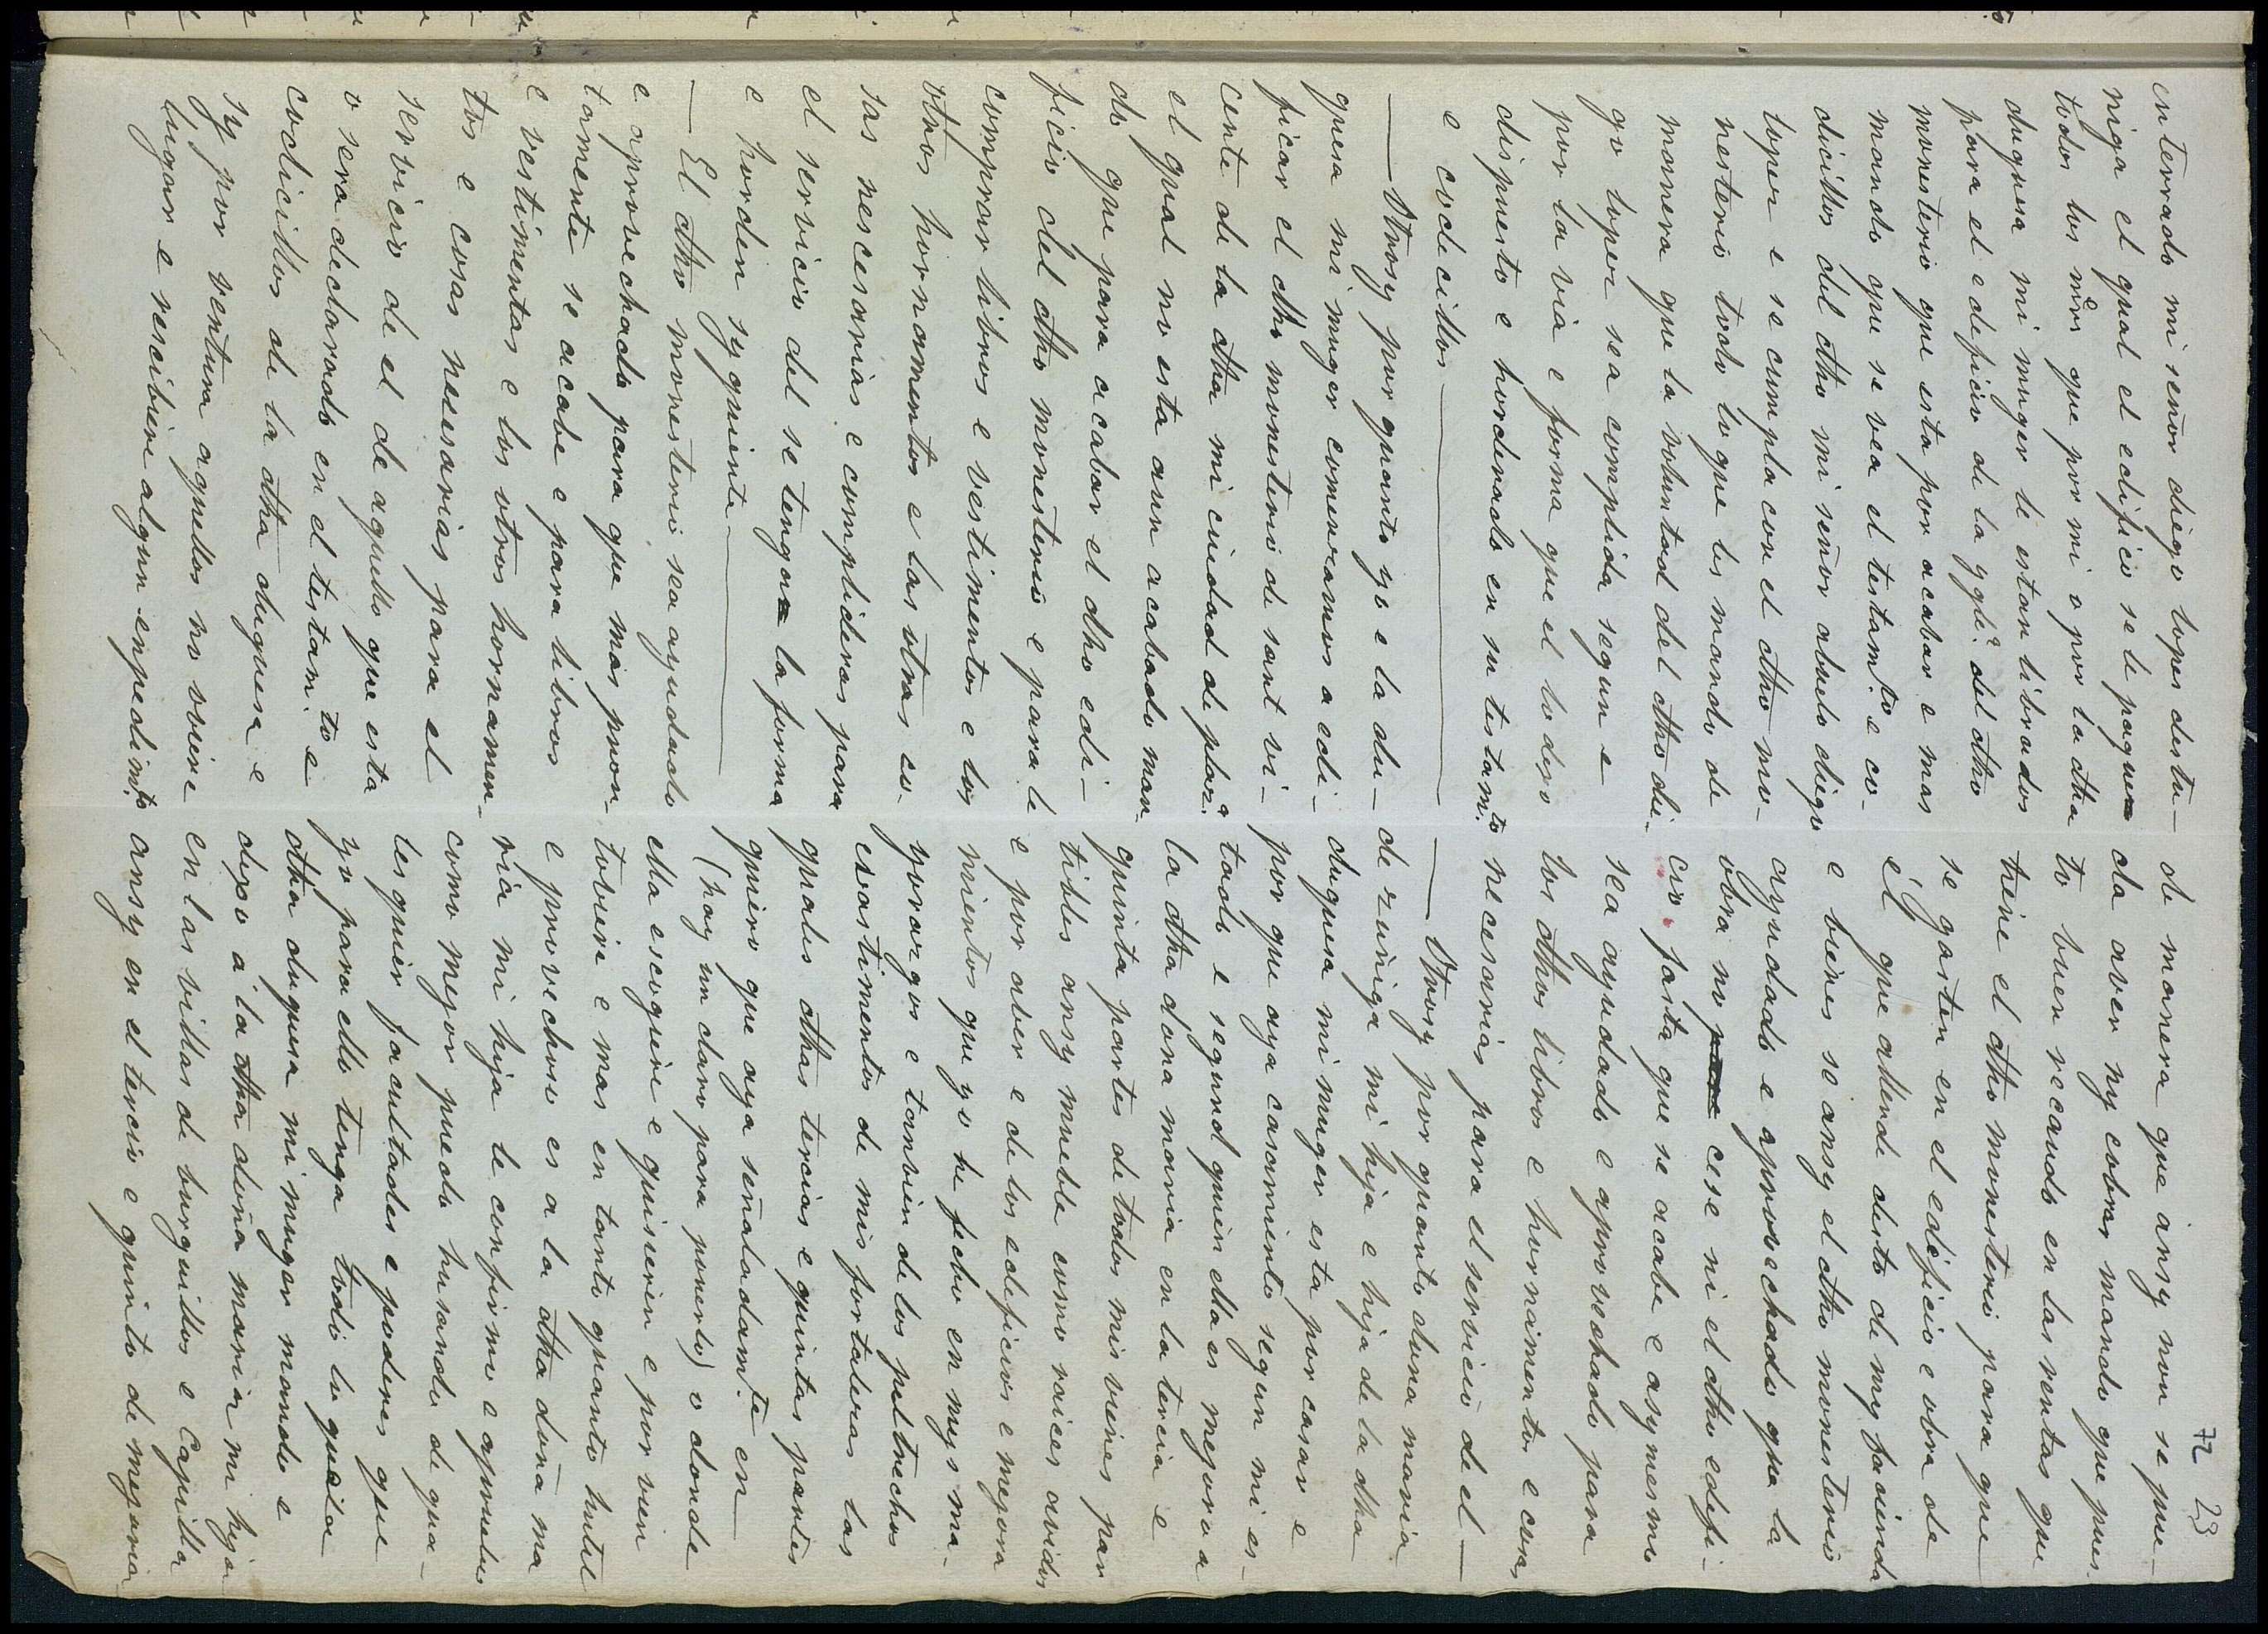 72 23
enterrado mi señor diego lopes destu-
niga el qual el edificio se le paguen
todos los mrs que por mi o por la dha
duquesa mi muger le estan librados
para el edeficio de la yglª del dho
monesterio que esta por acabar e mas
mando que se vea el testam.to e co-
dicillos del dho mi señor abuelo diego
loper e se cumpla con el dho mo-
nesterio todo lo que les mando de
manera que la voluntad del dho die-
go loper sea conplida segun e
por la via e forma que el lo dexo
dispuesto e hordenado en su testam.to
e codecillos —
— Otrosy por quanto yo e la du-
quesa mi muger comenzamos a edi-
ficar el dho monesterio de sant vi-
cente de la dha mi ciudad de plazª
el qual no esta aun acabado man-
do que para acabar el dho edi-
ficio del dho monesterio e para le
comprar libros e vestimentos e los
otros hornamentos e las otras co-
sas nescesarias e conplideras para
el servicio del se tengan la forma
e horden syguiente —
— El dho monesterio sea ayudado
e aprovechado para que mas pron-
tamente se acabe e para libros
e vestimentas e los otros hornamen-
tos e cosas nesesarias para el
servicio de el de aquello que esta
o sera declarado en el testam.to e
codicillos de la dha duquesa e
sy por ventura aquellos no oviere
lugar e rescibiere algun enpedim.to
de manera que ansy non se pue-
da aver ny cobrar mando que pues-
to buen recaudo en las rentas que
tiene el dho monesterio para que
se gasten en el edificio e obra de
él que allende desto de my facienda
e bienes se ansy el dho monesterio
ayudado e aprovechado que la
obra no cese ni el dho edifi-
cio fasta que se acabe e asymesmo
sea ayudado e aprovechado para
los dhos libros e hornamentos e cosas
necesarias para el servicio de el —
— Otrosy por quanto doña maria
de zuñiga mi hija e hija de la dha
duquesa mi muger esta por casar e
por que aya casamiento segun mi es-
tado e segund quien ella es mejoro a
la dha dona maria en la tercia e
quinta partes de todos mis vienes par
tibles ansy mueble como raices avidos
e por aver e de los edeficios e mejora
mientos que yo he fecho en mys ma-
yorazgos e tanbien de los peltrechos
e vastimentos de mis fortalezas las
quales dhas tercias e quintas partes
quiero que aya señaladam.te en
(hay un claro para ponerlo) o donde
ella escogiere e quisieren e por vien
toviere e mas en tanto quanto hutil
e provechoso es a la dha doña ma
ria mi hija le confirmo e apruebo
como mejor puedo husando de qua-
lesquier facultades e poderes que
yo para ello tenga todo lo que la
dha duquesa mi muger mando e
dexo á la dha doña maria mi hija
en las villas de burguillos e Capilla
ansy en el tercio e quinto de mejoria